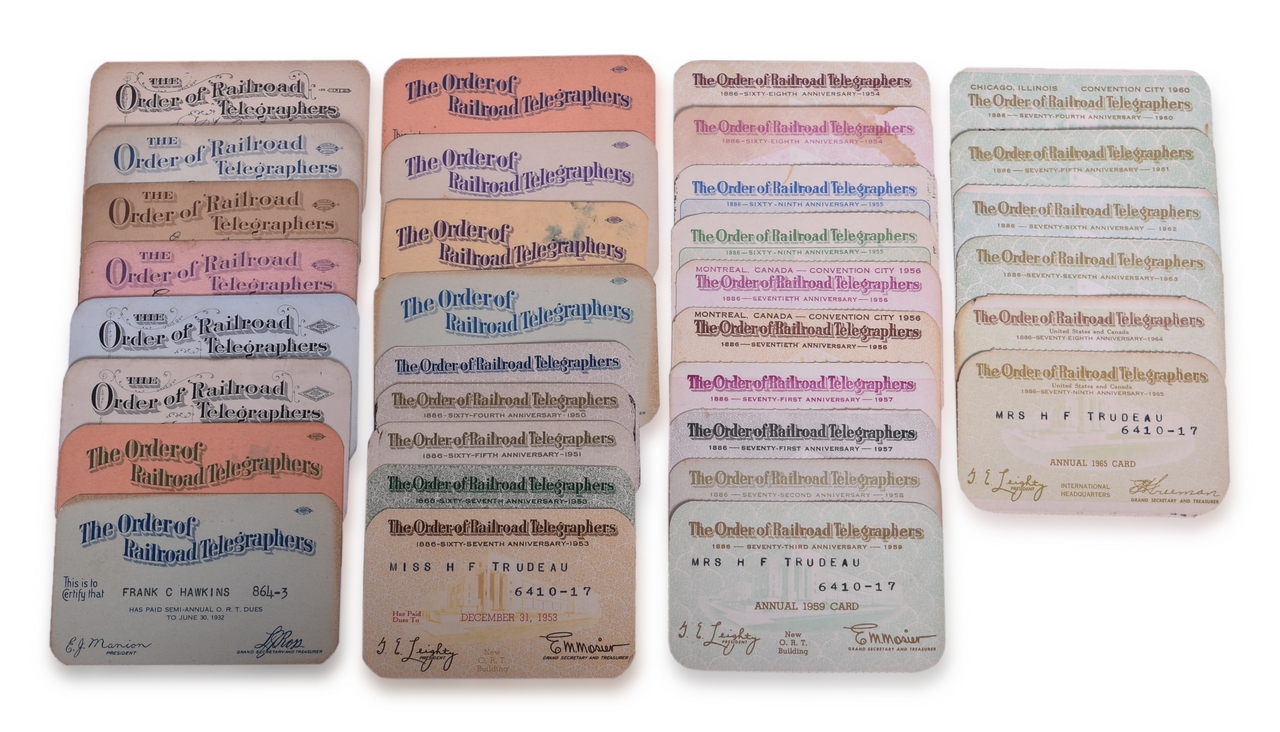 THE
Order of Railroad
Telegraphers
THE
Order of Railroad
Telegraphers
THE
Order of Railroad
Telegraphers
THE
Order of Railroad
Telegraphers
THE
Order of Railroad
Telegraphers
THE
Order of Railroad
Telegraphers
The Order of
Railroad Telegraphers
The Order of
Railroad Telegraphers
This is to
Certify that
FRANK C HAWKINS 864-3
HAS PAID SEMI-ANNUAL O. R. T. DUES
TO JUNE 30, 1932
E.J. Manion
PRESIDENT
GRAND SECRETARY AND TREASURER
The Order of
Railroad Telegraphers
This is to
The Order of
Railroad Telegraphers
The Order of
Railroad Telegraphers
The Order of
Railroad Telegraphers
The Order of Railroad Telegraphers
The Order of Railroad Telegraphers
1886-SIXTY-FOURTH ANNIVERSARY-1950
The Order of Railroad Telegraphers
1886-SIXTY-FIFTH ANNIVERSARY-1951
The Order of Railroad Telegraphers
1886-SIXTY-SEVENTH ANNIVERSARY-1953
The Order of Railroad Telegraphers
1886-SIXTY-SEVENTH ANNIVERSARY-1953
MISS H F TRUDEAU
6410-17
Has Paid
Dues To
DECEMBER 31, 1953
G. E. Leighty
PRESIDENT
New
O. R. T.
Building
E M Mosier
GRAND SECRETARY AND TREASURER
The Order of Railroad Telegraphers
1886-SIXTY-EIGHTH ANNIVERSARY-1954
The Order of Railroad Telegraphers
1886-SIXTY-EIGHTH ANNIVERSARY-1954
The Order of Railroad Telegraphers
1886-SIXTY-NINTH ANNIVERSARY-1955
The Order of Railroad Telegraphers
1886-SIXTY-NINTH ANNIVERSARY-1955
MONTREAL, CANADA — CONVENTION CITY 1956
The Order of Railroad Telegraphers
1886 — SEVENTIETH ANNIVERSARY — 1956
MONTREAL, CANADA — CONVENTION CITY 1956
The Order of Railroad Telegraphers
1886 — SEVENTIETH ANNIVERSARY — 1956
The Order of Railroad Telegraphers
1886 — SEVENTY-FIRST ANNIVERSARY — 1957
The Order of Railroad Telegraphers
1886 — SEVENTY-FIRST ANNIVERSARY — 1957
The Order of Railroad Telegraphers
1886 — SEVENTY-SECOND ANNIVERSARY — 1958
The Order of Railroad Telegraphers
1886 — SEVENTY-THIRD ANNIVERSARY — 1959
MRS H F TRUDEAU
6410-17
ANNUAL 1959 CARD
G. E. Leighty
PRESIDENT
New
O. R. T.
Building
E M Mosier
GRAND SECRETARY AND TREASURER
CHICAGO, ILLINOIS CONVENTION CITY 1960
The Order of Railroad Telegraphers
1886 — SEVENTY-FOURTH ANNIVERSARY — 1960
The Order of Railroad Telegraphers
1886 — SEVENTY-FIFTH ANNIVERSARY — 1961
The Order of Railroad Telegraphers
1886 — SEVENTY-SIXTH ANNIVERSARY — 1962
The Order of Railroad Telegraphers
1886-SEVENTY-SEVENTH ANNIVERSARY-1963
The Order of Railroad Telegraphers
United States and Canada
1886-SEVENTY-EIGHTH ANNIVERSARY-1964
The Order of Railroad Telegraphers
United States and Canada
1886-SEVENTY-NINTH ANNIVERSARY-1965
MRS H F TRUDEAU
6410-17
ANNUAL 1965 CARD
G. E. Leighty
PRESIDENT
INTERNATIONAL
HEADQUARTERS
GRAND SECRETARY AND TREASURER